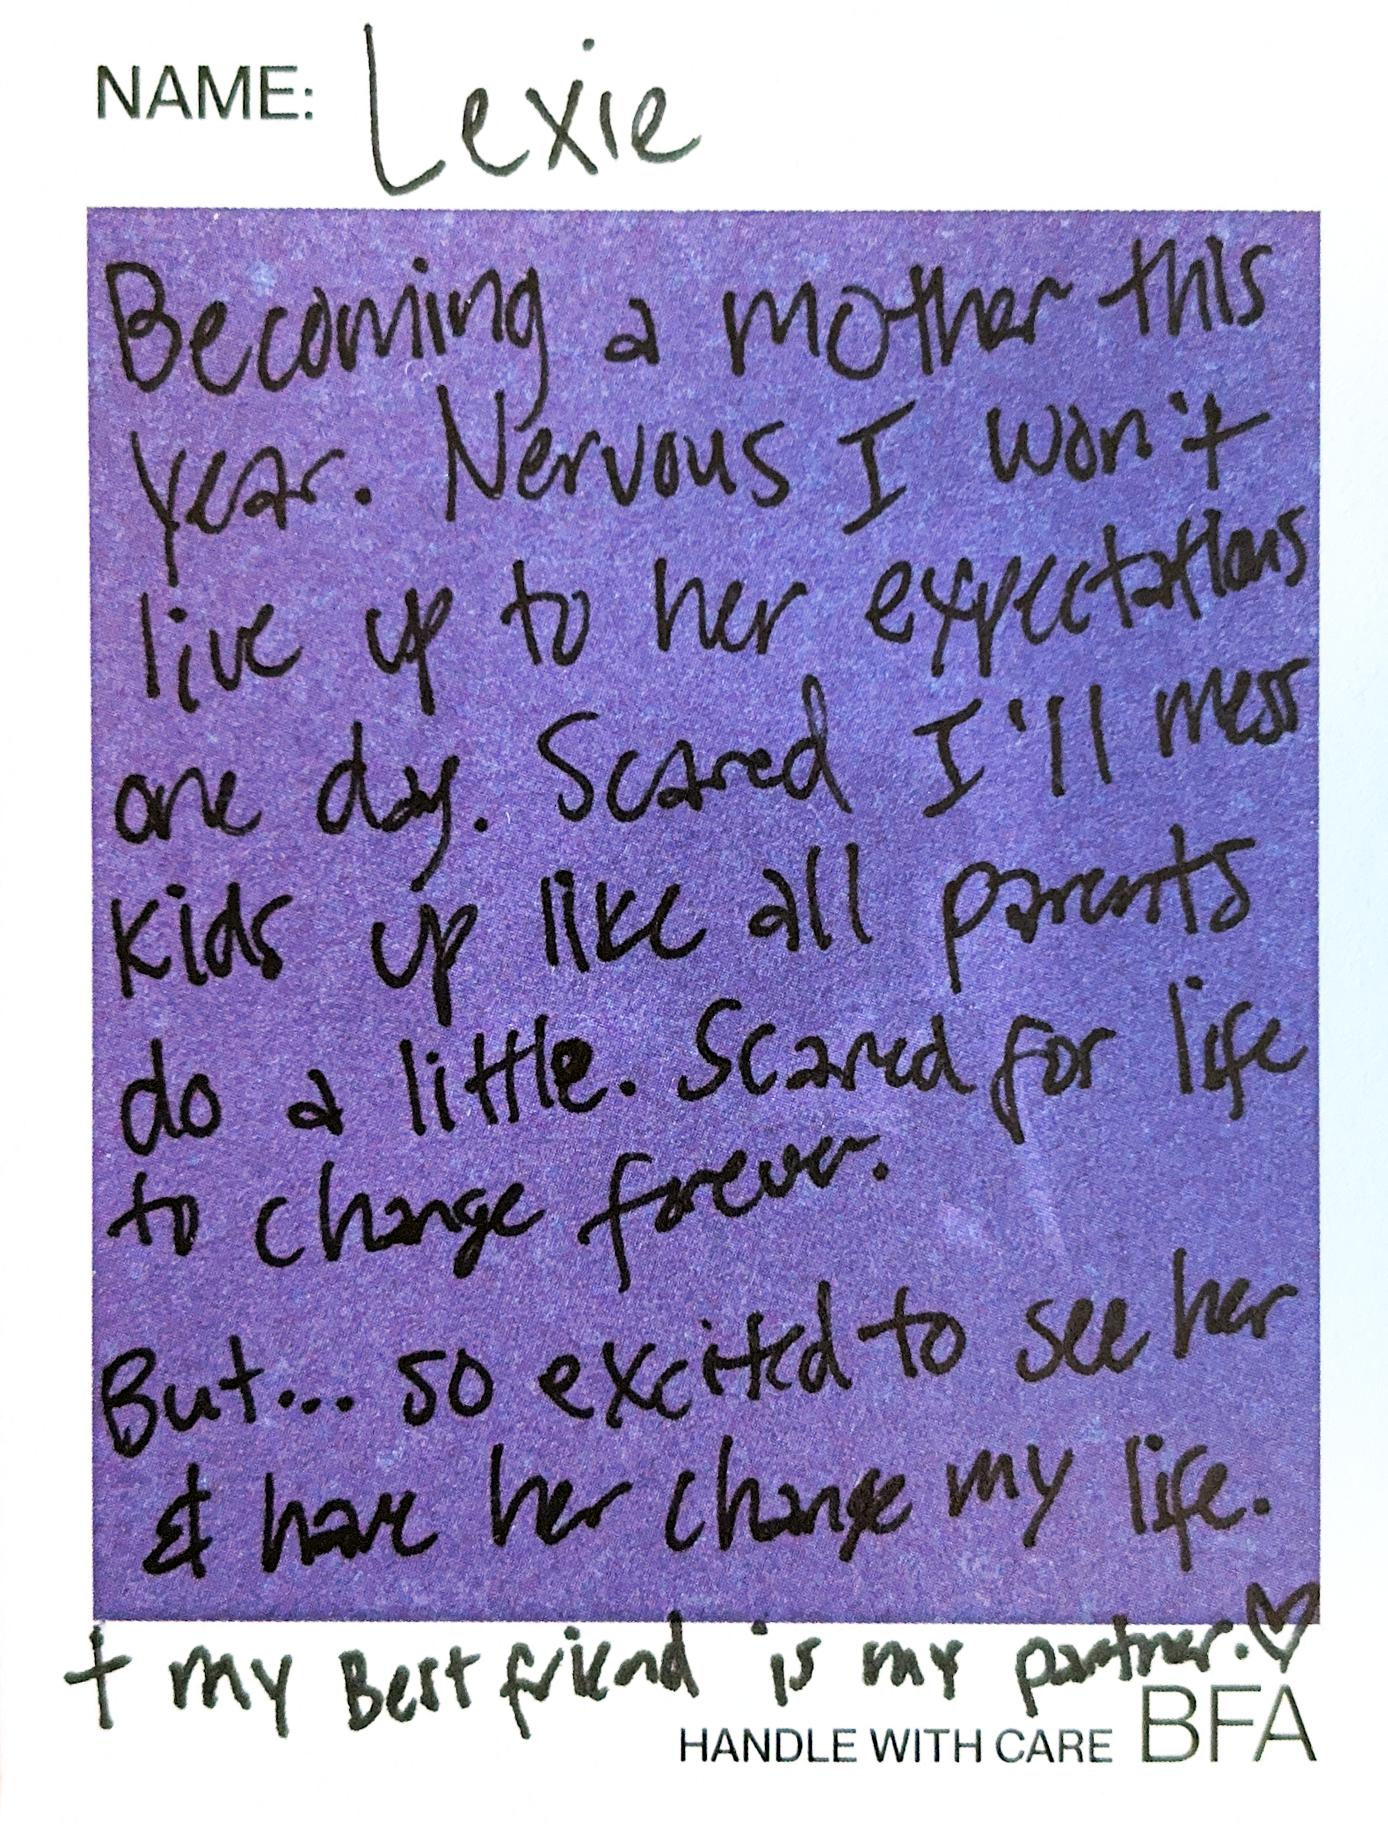 NAME: Lexie
Becoming a mother this
year. Nervous I won't
live up to her expectations
one day. Scared I'll mess
kids up like all parents
do a little. Scared for life
to change forever.
But... so excited to see her
& have her change my life.
+ my Best friend is my partner. ♡
HANDLE WITH CARE BFA